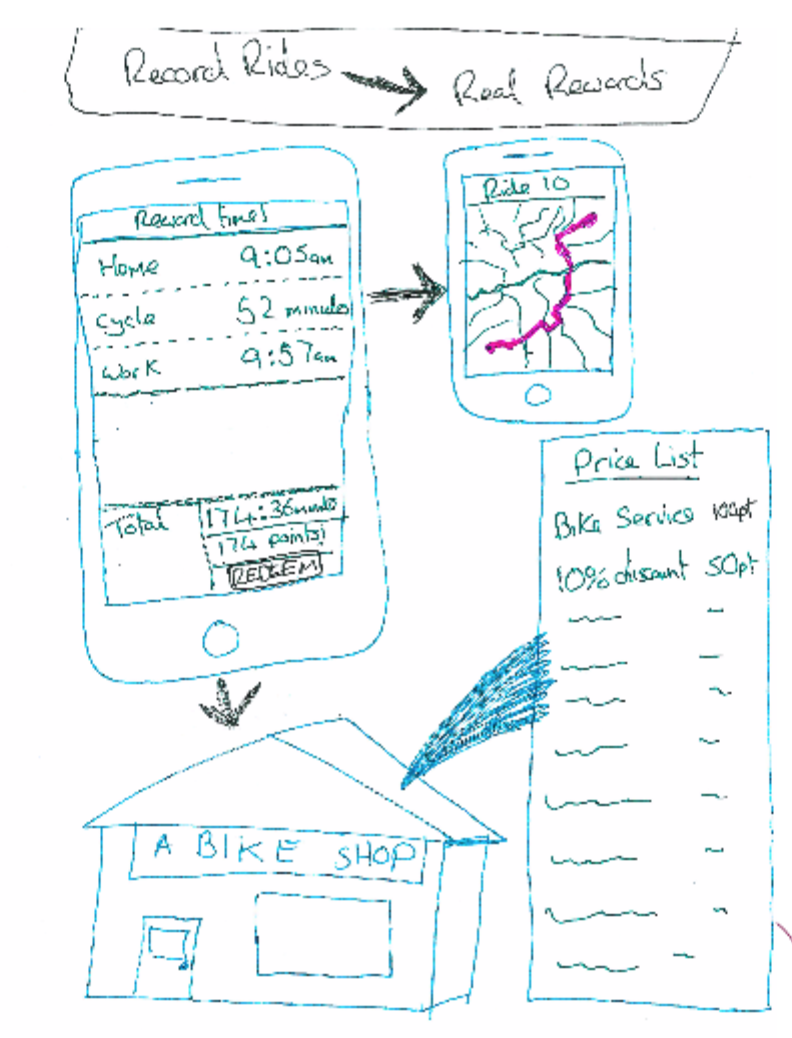 Record Rides → Real Rewards
Record time!
Home 9:05am
Cycle 52 minutes
Work 9:57am
Total 174:36minute
174 points!
REDEEM
Ride 10
Price List
Bike Service 100pt
10% discount 50pt
A BIKE SHOP